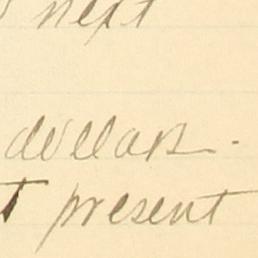 next
dollars.
present